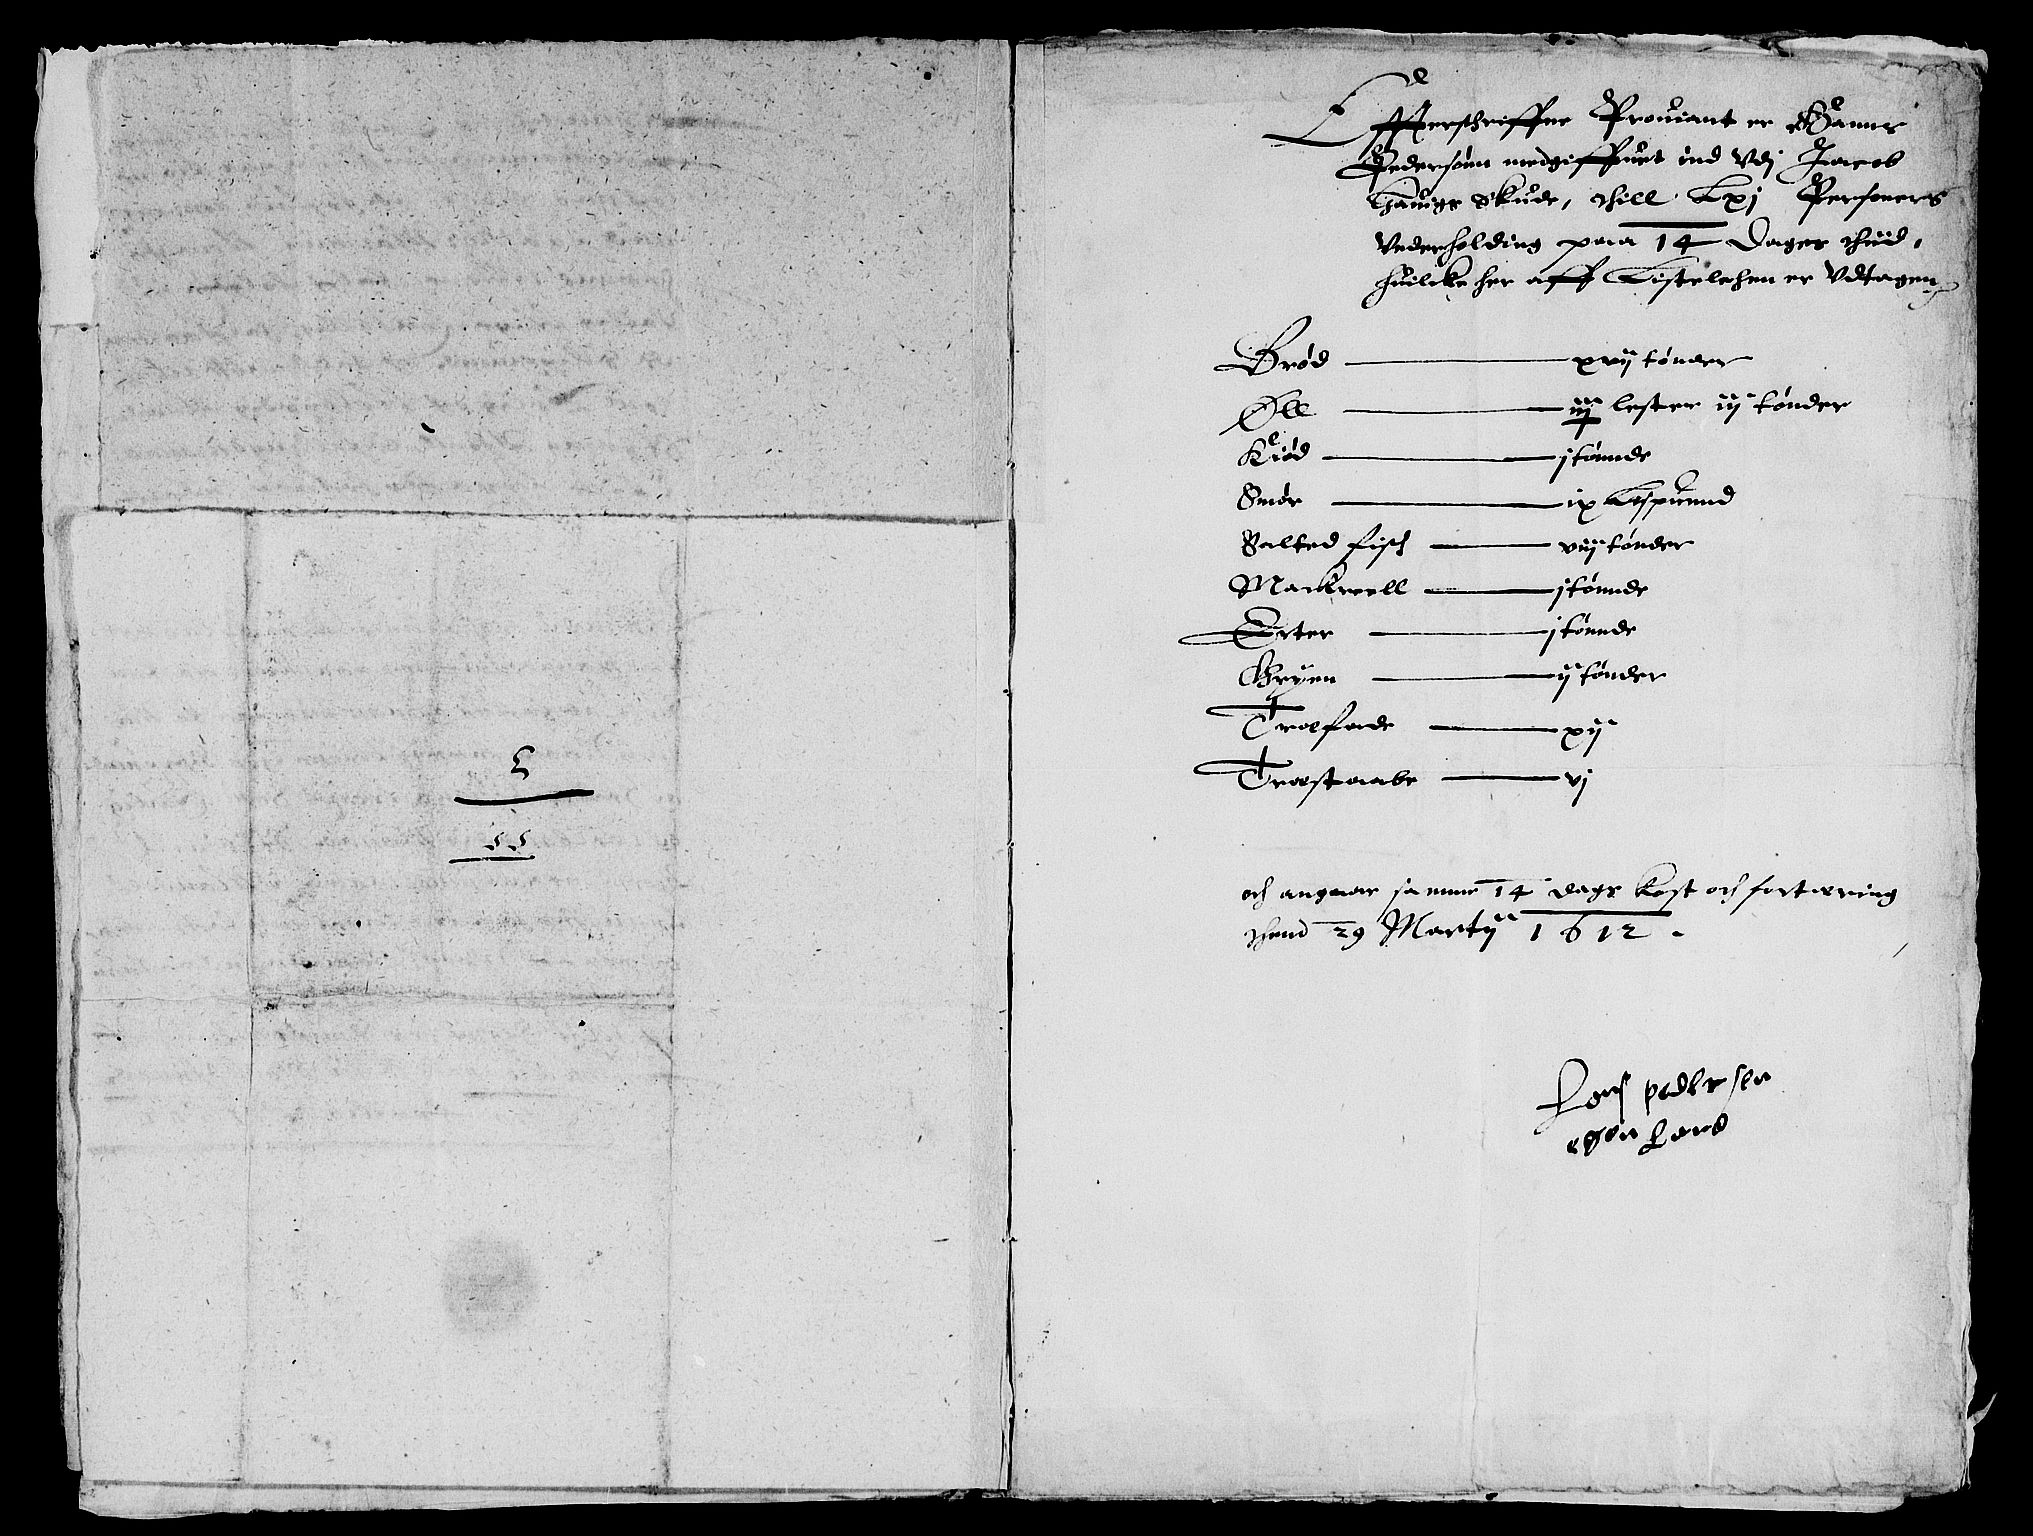 Effterschreffne Prouiant er Hanns
Pedersønn medgiffuet ind Vdj Jacob
skude, thill Lxj Personers
Vnderholding paa 14 Dagers thiid,
huilcke her aff Listelehen er Vdtagen
Brød xvij tønder
Øll lester iij tønder
Kiød j tønnde
Smør ix Lispuund
Salted fisch viij tønder
Mackreell j tønnde
Erter j tønnde
Gryen ij tønder
Træfade xij
Træstaabe vj
och anguar samme 14 dags kost och fortæring
thend 29 Martij 1612.
pedersen
egen hand